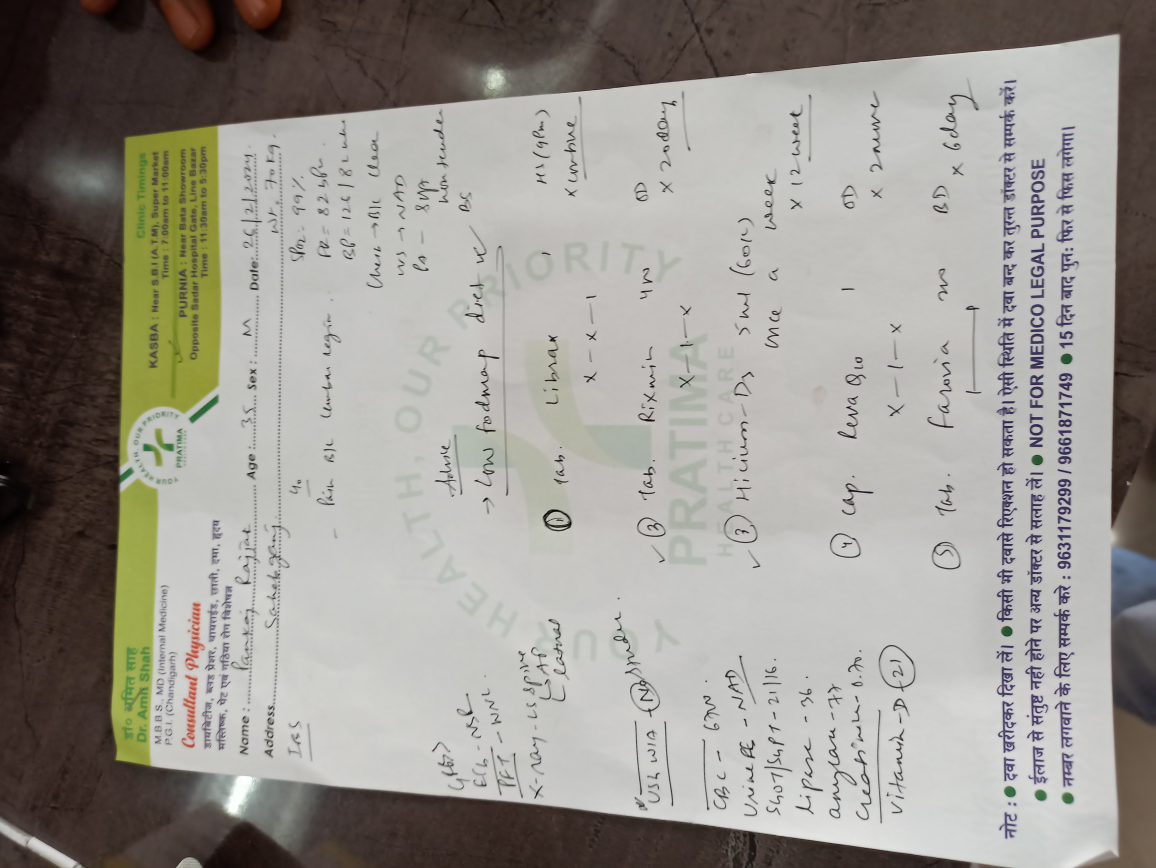 डॉ० अमित साह
Dr. Amit Shah
M.B.B.S., MD (Internal Medicine)
P.G.I. (Chandigarh)
Consultant Physician
डायबिटीज, ब्लड प्रेशर, थायराईड, छाती, दमा, हृदय
मस्तिष्क, पेट एवं गठिया रोग विशेषज्ञ
YOUR HEALTH, OUR PRIORITY
PRATIMA
Clinic Timings
KASBA : Near S.B.I (A.T.M), Super Market
Time : 7:00am to 11:00am
PURNIA : Near Bata Showroom
Opposite Sadar Hospital Gate, Line Bazar
Time : 11:30am to 5:30pm
Name : Pankaj Age : 35 Sex : M Date: 26/2/2024
Address Sahebganj Wt. 70 kg.
IBS
c/o
- Pain B/L lumbar region.
SPO2 = 99%
PR = 82 bpm.
BP = 126/82 mmHg
Chest → B/L Clear
CVS → NAD
P/A - Soft
Non tender
BS
ECG - NSR
PFT - WNL
X-ray - LS Spine
AP
Lateral
USG W/A - NO
CBC - WN.
Urine RE - NAD
SGOT/SGPT - 21/16.
Lipase - 36.
amylase - 77
Creatinine - 0.70.
Vitamin-D - 21
Advice
→ Low fodmap diet
① Tab. Librax 1 HS (9Pm)
x - x - 1
② Tab. Rixmin 400 OD
x - 1 - x x 20 days
③ Hicium-D3 5ml (60K)
once a week
x 12 week
④ Cap. Reva Q10 1 OD
x - 1 - x
⑤ Tab. Farovia 200 BD
x 6 days
YOUR HEALTH, OUR PRIORITY
PRATIMA
HEALTH CARE
नोट : ● दवा खरीदकर दिखा लें। ● किसी भी दवासे रिएक्शन हो सकता है। ऐसी स्थिति में दवा बन्द कर तुरन्त डॉक्टर से सम्पर्क करें।
● ईलाज से संतुष्ट नही होने पर अन्य डॉक्टर से सलाह लें। ● NOT FOR MEDICO LEGAL PURPOSE
● नम्बर लगवाने के लिए सम्पर्क करे : 9631179299 / 9661871749 ● 15 दिन बाद पुन: फिर से फिस लगेगा।